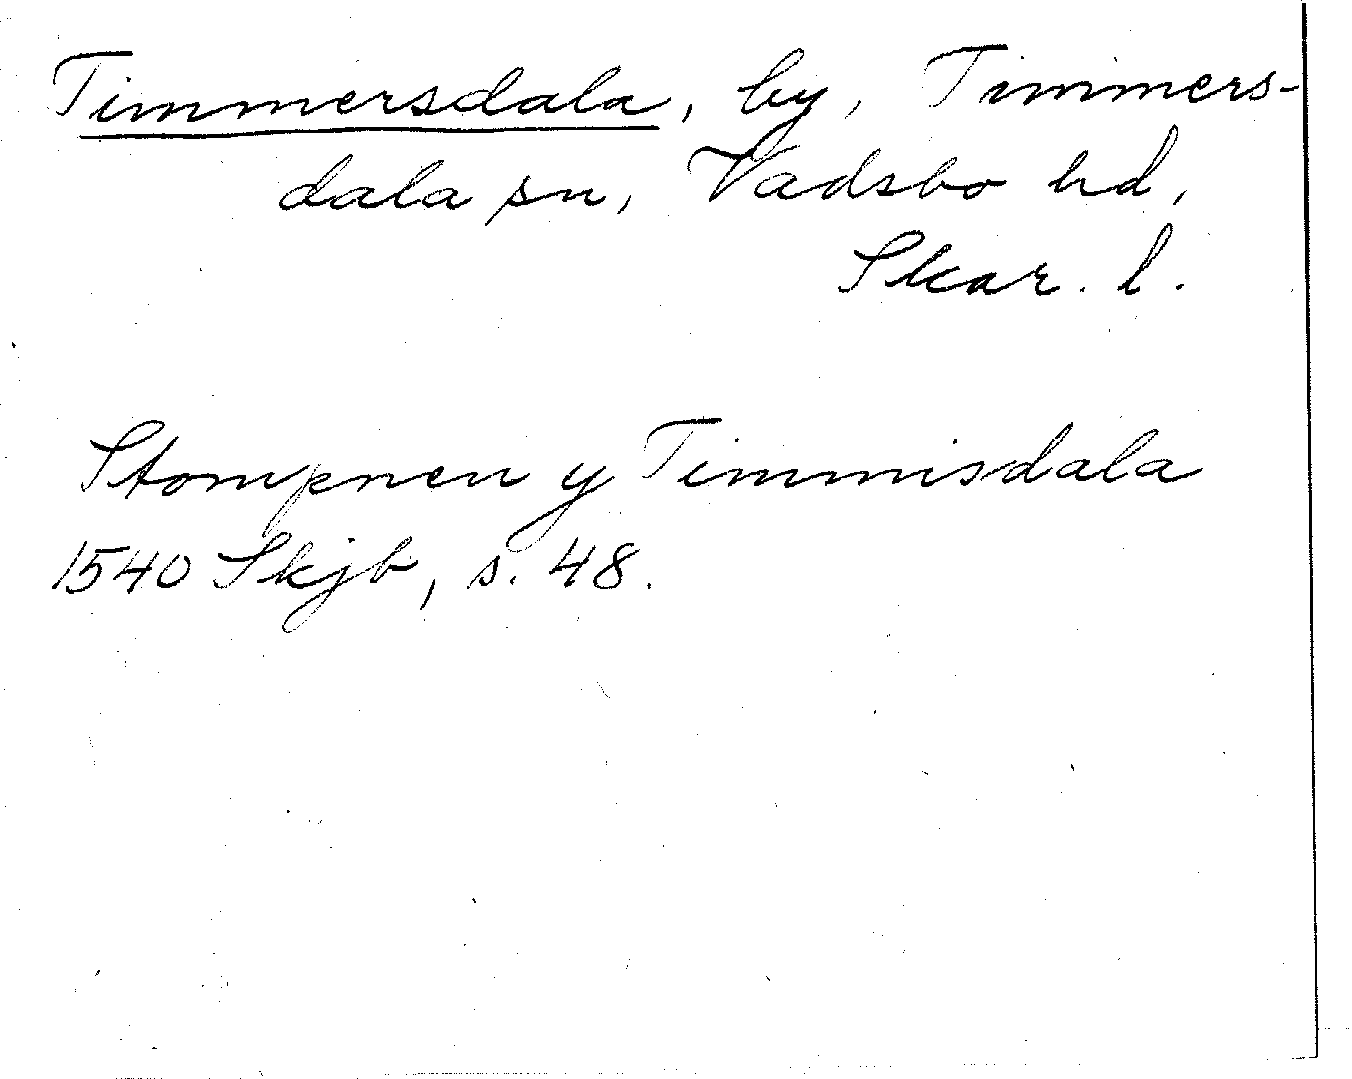 Timmersdala, by, Timmers-
dala sn, Vadsbo hd,
Skar. l.
Stompnen y Timmisdala
1540 Skjb, s. 48.